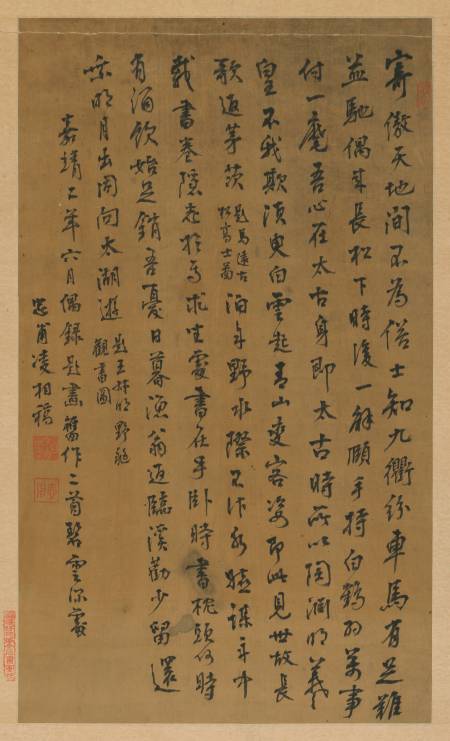 寄傲天地間不為俗士知九衢紛車馬有足難
益馳偶來長松下時復一解頤手持白鶴羽萬事
付一麾吾心在太古身即太古時所以陶淵明羲
皇不我欺須臾白雲起青山變容姿即此見世故長
歌返茅茨 題馬遠古松高士圖 泊舟野水際不作 謀舟中
載書卷隱在於 求坐處書在手臥時書枕頭何時
有酒飲始足銷吾憂日暮漁翁返臨溪勸少留還
乘明月出同向太湖遊 題王叔明野艇觀書圖
嘉靖 年六月偶錄題畫舊作二首碧雲深處
忠甫凌相稿